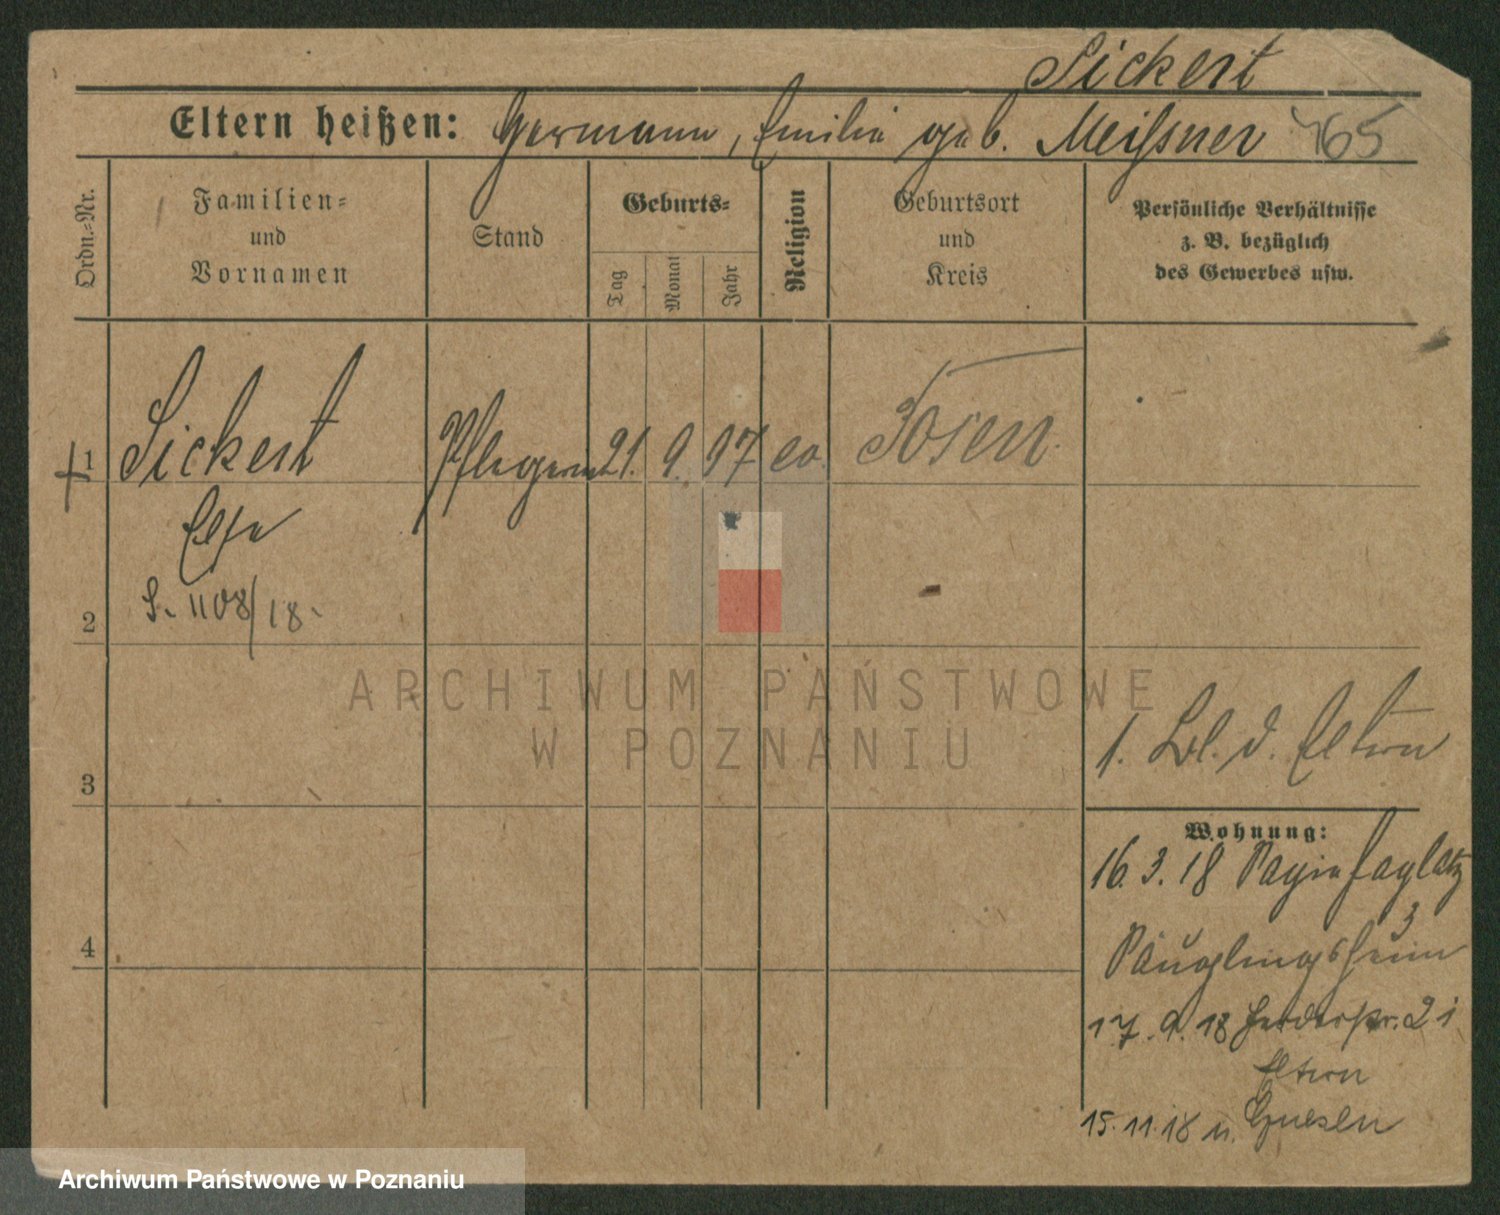 Sickert
Eltern heißen: Hermann, Emilie geb. Meissner 765
Ordn.-Nr.
Familien-
und
Vornamen
Stand
Geburts-
Tag
Monat
Jahr
Religion
Geburtsort
und
Kreis
Persönliche Verhältnisse
z. B. bezüglich
des Gewerbes usw.
1 Sickert Pflegerin 21. 9. 97 ev. Posen
Else
2 S. 1108/18.
ARCHIWUM PAŃSTWOWE
W POZNANIU
3
1. Bl. d. Eltern
Wohnung:
16. 3. 18
4
Säuglingsheim
17. 9. 18 Herderstr. 21
Eltern
15. 11. 18 n. Gnesen
Archiwum Państwowe w Poznaniu